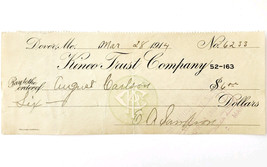 Dover, Me. Mar 28 1914 No. 6233
Kineo Trust Company 52-163
Pay to the order of August Carlson $6.00
Six Dollars